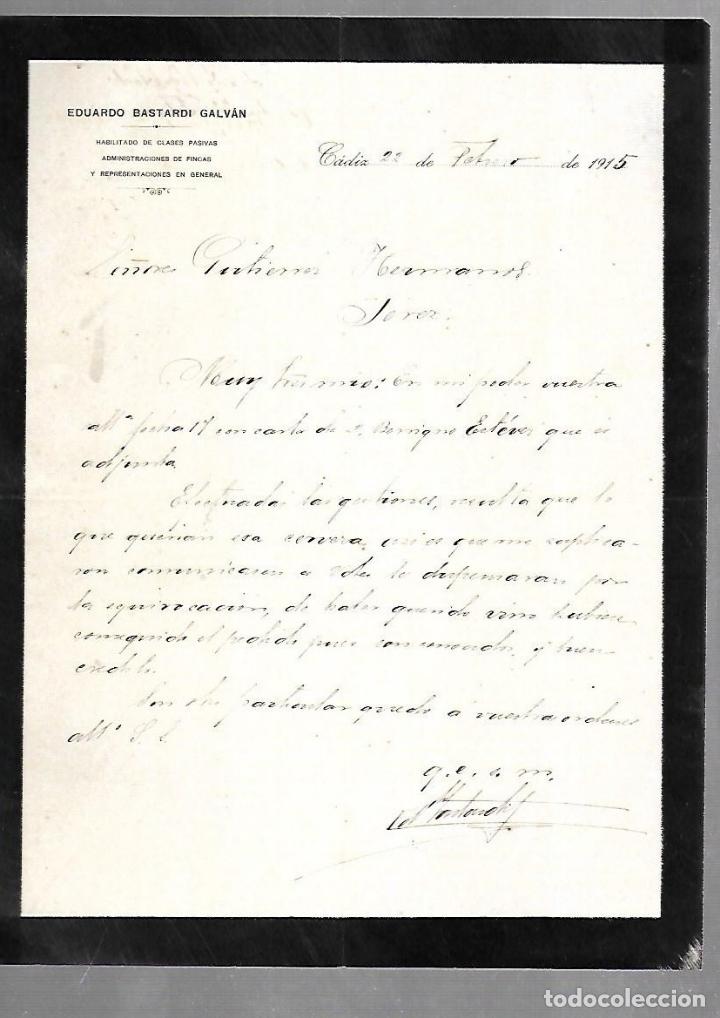 EDUARDO BASTARDI GALVÁN
HABILITADO DE CLASES PASIVAS
ADMINISTRACIONES DE FINCAS
Y REPRESENTACIONES EN GENERAL
Cádiz 22 de Febrero de 1915
Señores Gutierrez Hermanos.
Jerez.
Muy Sres mios: En mi poder vuestra
att.ª fecha 17 con carta de D. Benigno Estévez que es
adjunta.
Efectuadas las gestiones, resulta que lo
que querian era cerveza, asi es que me suplica-
ron comunicase a Vdes le dispensaran por
la equivocacion, de haber querido vino hubiese
conseguido el pedido pues son conocidos y buen
credito.
Sin otro particular quedo a vuestras ordenes
att.º S. S.
q. e. s. m.
Bastardi
todocoleccion